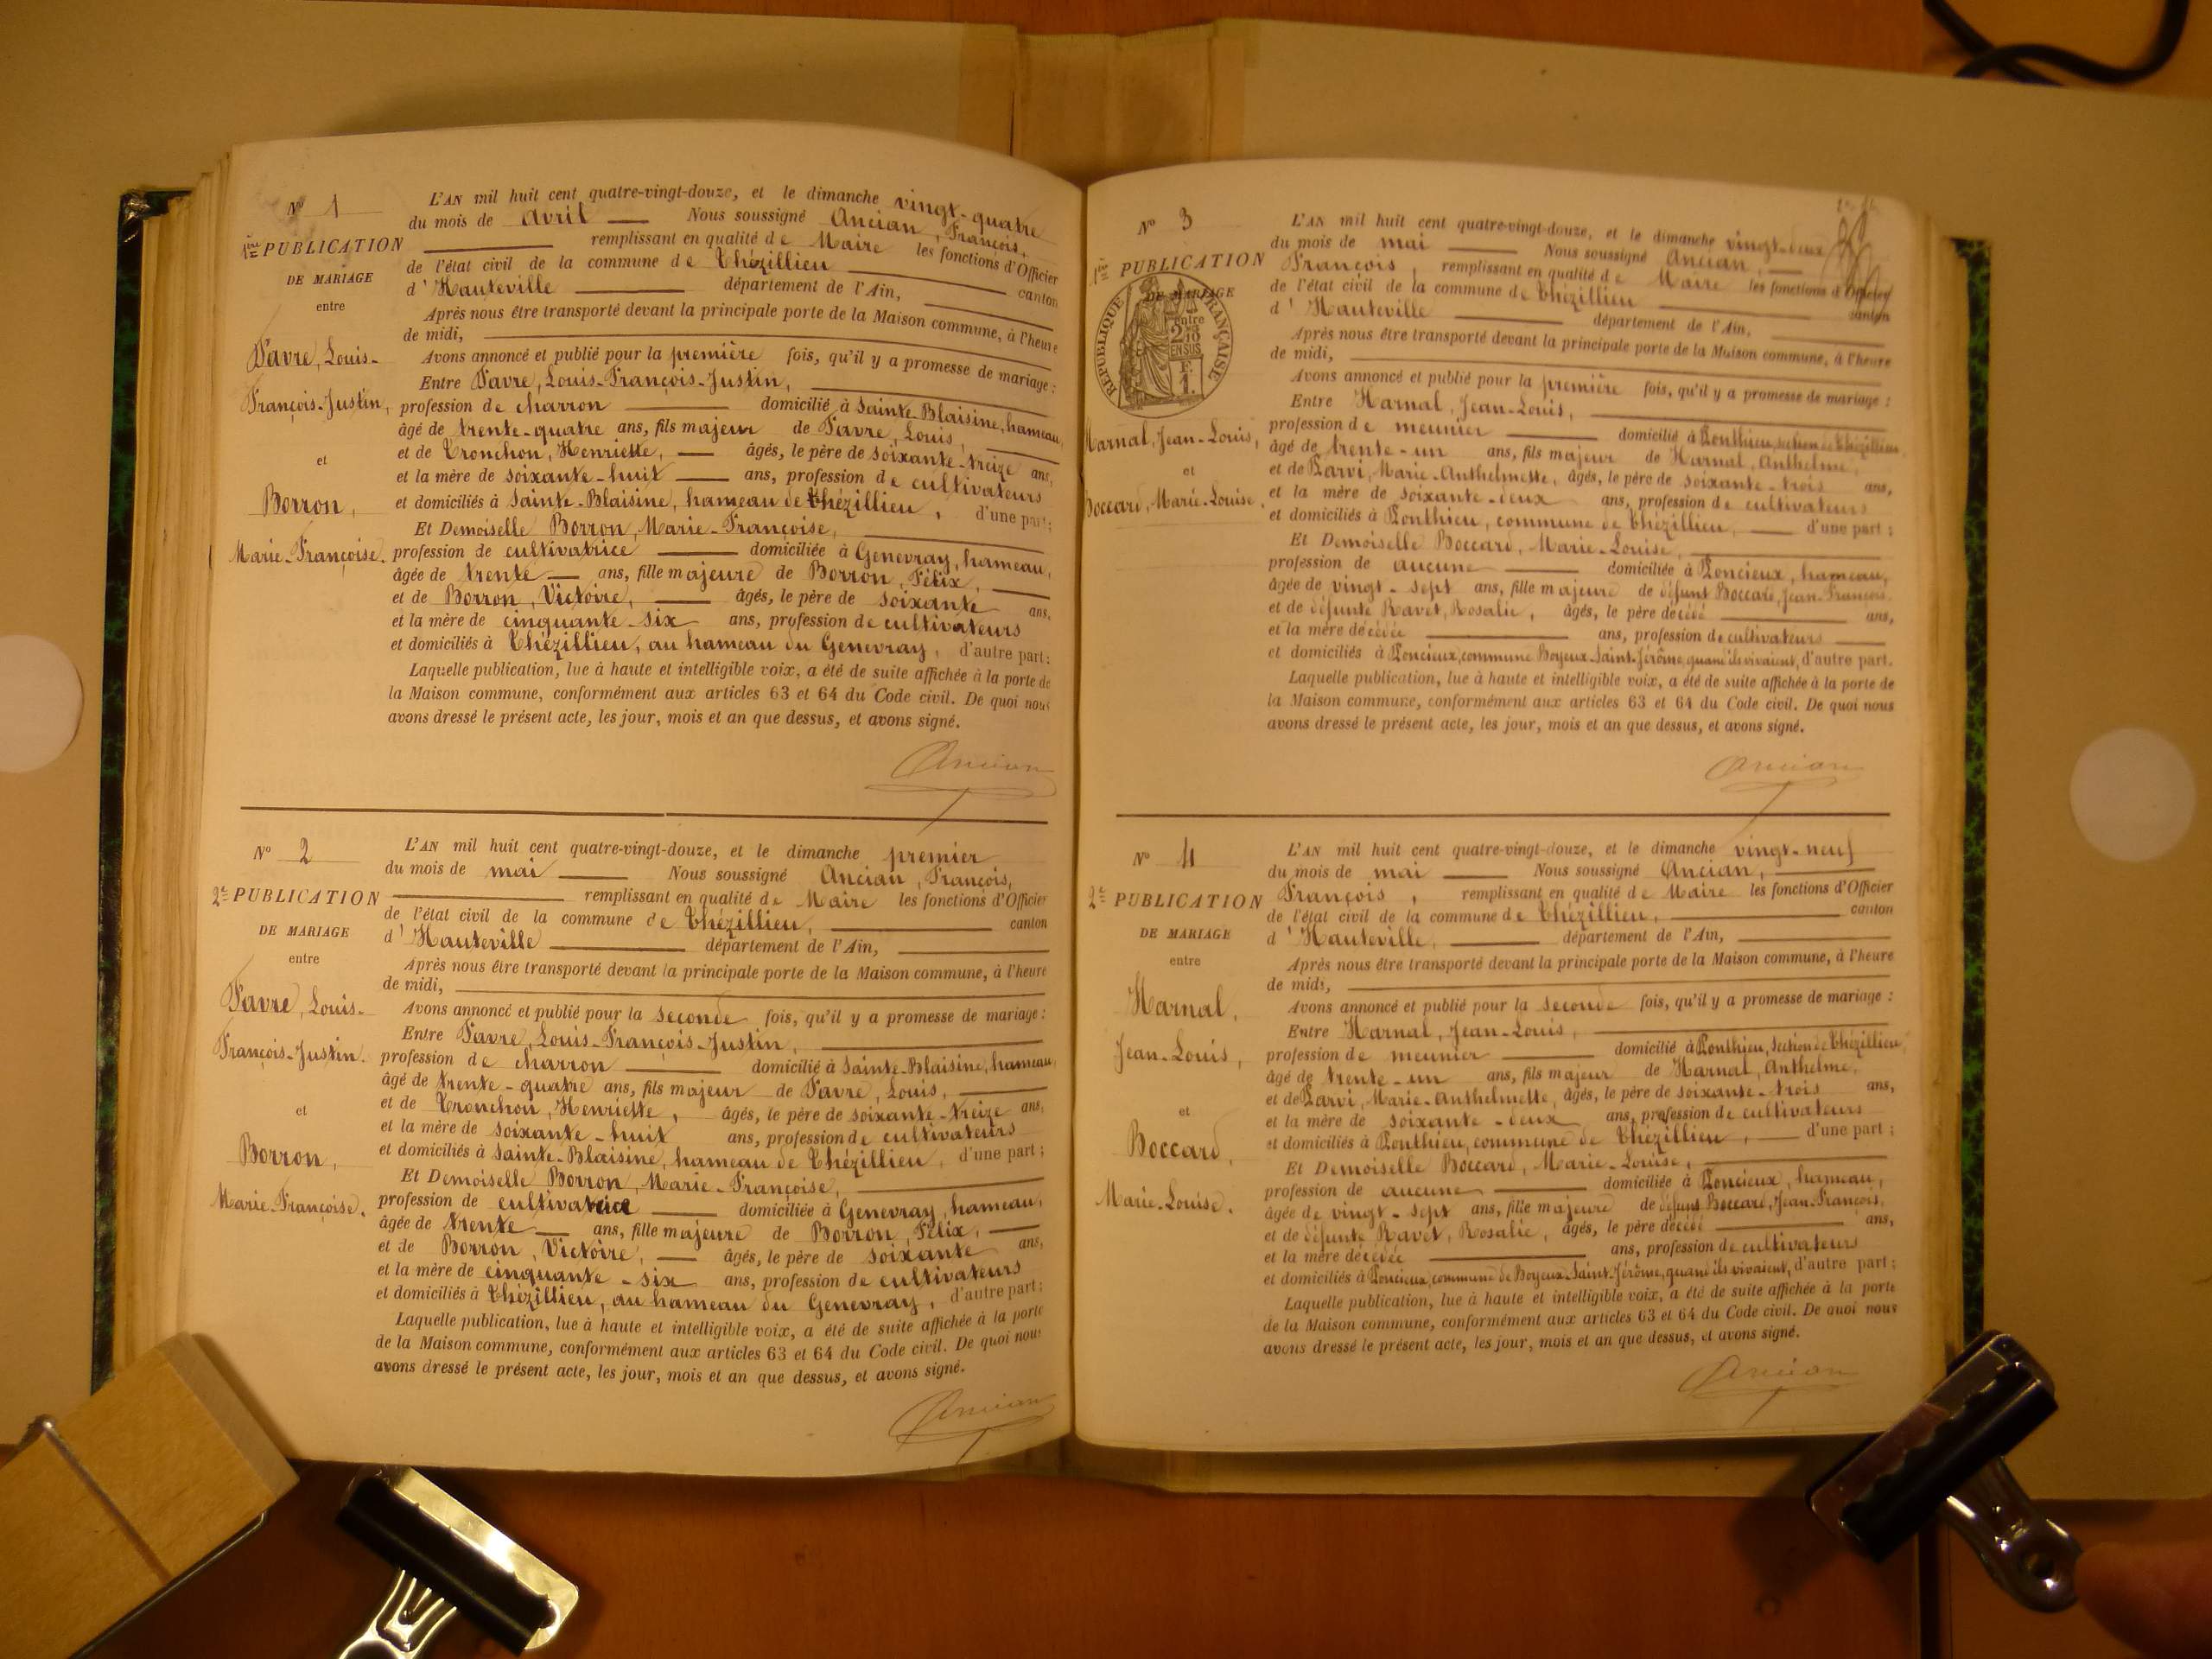 N° 1
1ère PUBLICATION
DE MARIAGE
entre
Favre, Louis-
François-Justin,
et
Borron,
Marie-Françoise.
L'AN mil huit cent quatre-vingt-douze, et le dimanche vingt-quatre
du mois de avril Nous soussigné Ancian, François,
remplissant en qualité de Maire les fonctions d'Officier
de l'état civil de la commune de Thézillieu canton
d'Hauteville département de l'Ain,
Après nous être transporté devant la principale porte de la Maison commune, à l'heure
de midi,
Avons annoncé et publié pour la première fois, qu'il y a promesse de mariage :
Entre Favre, Louis-François-Justin,
profession de charron domicilié à Sainte-Blaisine, hameau,
âgé de trente-quatre ans, fils majeur de Favre, Louis,
et de Tronchon, Henriette, âgés, le père de soixante-treize ans,
et la mère de soixante-huit ans, profession de cultivateurs
et domiciliés à Sainte-Blaisine, hameau de Thézillieu, d'une part;
Et Demoiselle Borron, Marie-Françoise,
profession de cultivatrice domiciliée à Genevray, hameau,
âgée de trente ans, fille majeure de Borron, Félix,
et de Borron, Victoire, âgés, le père de soixante ans,
et la mère de cinquante-six ans, profession de cultivateurs
et domiciliés à Thézillieu, au hameau du Genevray, d'autre part;
Laquelle publication, lue à haute et intelligible voix, a été de suite affichée à la porte de
la Maison commune, conformément aux articles 63 et 64 du Code civil. De quoi nous
avons dressé le présent acte, les jour, mois et an que dessus, et avons signé.
Ancian
N° 2
2e PUBLICATION
DE MARIAGE
entre
Favre, Louis-
François-Justin.
et
Borron,
Marie-Françoise.
L'AN mil huit cent quatre-vingt-douze, et le dimanche premier
du mois de mai Nous soussigné Ancian, François,
remplissant en qualité de Maire les fonctions d'Officier
de l'état civil de la commune de Thézillieu, canton
d'Hauteville département de l'Ain,
Après nous être transporté devant la principale porte de la Maison commune, à l'heure
de midi,
Avons annoncé et publié pour la seconde fois, qu'il y a promesse de mariage :
Entre Favre, Louis-François-Justin,
profession de charron domicilié à Sainte-Blaisine, hameau,
âgé de trente-quatre ans, fils majeur de Favre, Louis,
et de Tronchon, Henriette, âgés, le père de soixante-treize ans,
et la mère de soixante-huit ans, profession de cultivateurs
et domiciliés à Sainte-Blaisine, hameau de Thézillieu, d'une part;
Et Demoiselle Borron, Marie-Françoise,
profession de cultivatrice domiciliée à Genevray, hameau,
âgée de trente ans, fille majeure de Borron, Félix,
et de Borron, Victoire, âgés, le père de soixante ans,
et la mère de cinquante-six ans, profession de cultivateurs
et domiciliés à Thézillieu, au hameau du Genevray, d'autre part;
Laquelle publication, lue à haute et intelligible voix, a été de suite affichée à la porte
de la Maison commune, conformément aux articles 63 et 64 du Code civil. De quoi nous
avons dressé le présent acte, les jour, mois et an que dessus, et avons signé.
Ancian
N° 3
1ère PUBLICATION
DE MARIAGE
entre
RÉPUBLIQUE FRANÇAISE
2/10 EN SUS
F. 1
Harnal, Jean-Louis,
et
Boccard, Marie-Louise.
L'AN mil huit cent quatre-vingt-douze, et le dimanche vingt-deux
du mois de mai Nous soussigné Ancian,
François, remplissant en qualité de Maire les fonctions d'Officier
de l'état civil de la commune de Thézillieu canton
d'Hauteville département de l'Ain,
Après nous être transporté devant la principale porte de la Maison commune, à l'heure
de midi,
Avons annoncé et publié pour la première fois, qu'il y a promesse de mariage :
Entre Harnal, Jean-Louis,
profession de meunier domicilié à Ponthieu, section de Thézillieu,
âgé de trente-un ans, fils majeur de Harnal, Anthelme,
et de Parvi, Marie-Anthelmette, âgés, le père de soixante-trois ans,
et la mère de soixante-deux ans, profession de cultivateurs
et domiciliés à Ponthieu, commune de Thézillieu, d'une part;
Et Demoiselle Boccard, Marie-Louise,
profession de aucune domiciliée à Poncieux, hameau,
âgée de vingt-sept ans, fille majeure de défunt Boccard, Jean-François,
et de défunte Ravet, Rosalie, âgés, le père décédé ans,
et la mère décédée ans, profession de cultivateurs
et domiciliés à Poncieux, commune Boyeux-Saint-Jérôme, quand ils vivaient, d'autre part.
Laquelle publication, lue à haute et intelligible voix, a été de suite affichée à la porte de
la Maison commune, conformément aux articles 63 et 64 du Code civil. De quoi nous
avons dressé le présent acte, les jour, mois et an que dessus, et avons signé.
Ancian
N° 4
2e PUBLICATION
DE MARIAGE
entre
Harnal,
Jean-Louis,
et
Boccard,
Marie-Louise.
L'AN mil huit cent quatre-vingt-douze, et le dimanche vingt-neuf
du mois de mai Nous soussigné Ancian,
François, remplissant en qualité de Maire les fonctions d'Officier
de l'état civil de la commune de Thézillieu, canton
d'Hauteville, département de l'Ain,
Après nous être transporté devant la principale porte de la Maison commune, à l'heure
de midi,
Avons annoncé et publié pour la seconde fois, qu'il y a promesse de mariage :
Entre Harnal, Jean-Louis,
profession de meunier domicilié à Ponthieu, section de Thézillieu,
âgé de trente-un ans, fils majeur de Harnal, Anthelme,
et de Parvi, Marie-Anthelmette, âgés, le père de soixante-trois ans,
et la mère de soixante-deux ans, profession de cultivateurs
et domiciliés à Ponthieu, commune de Thézillieu, d'une part;
Et Demoiselle Boccard, Marie-Louise,
profession de aucune domiciliée à Poncieux, hameau,
âgée de vingt-sept ans, fille majeure de défunt Boccard, Jean-François,
et de défunte Ravet, Rosalie, âgés, le père décédé ans,
et la mère décédée ans, profession de cultivateurs
et domiciliés à Poncieux, commune de Boyeux-Saint-Jérôme, quand ils vivaient, d'autre part;
Laquelle publication, lue à haute et intelligible voix, a été de suite affichée à la porte
de la Maison commune, conformément aux articles 63 et 64 du Code civil. De quoi nous
avons dressé le présent acte, les jour, mois et an que dessus, et avons signé.
Ancian